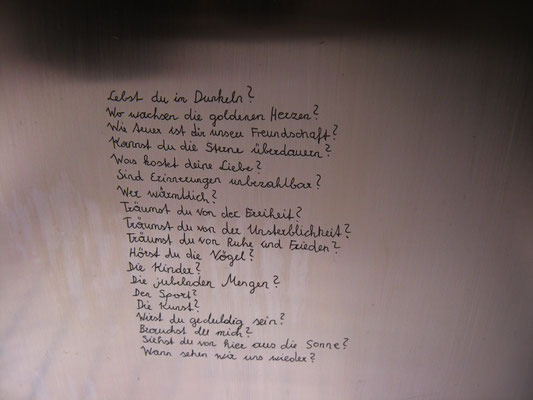 Lebst du im Dunkeln?
Wo wachsen die goldenen Herzen?
Wie teuer ist dir unsere Freundschaft?
Kannst du die Sterne überdauern?
Was kostet deine Liebe?
Sind Erinnerungen unbezahlbar?
Wer wärmtdich?
Träumst du von der Freiheit?
Träumst du von der Unsterblichkeit?
Träumst du von Ruhe und Frieden?
Hörst du die Vögel?
Die Kinder?
Die jubelnden Mengen?
Den Sport?
Die Kunst?
Wirst du geduldig sein?
Brauchst du mich?
Siehst du von hier aus die Sonne?
Wann sehen wir uns wieder?